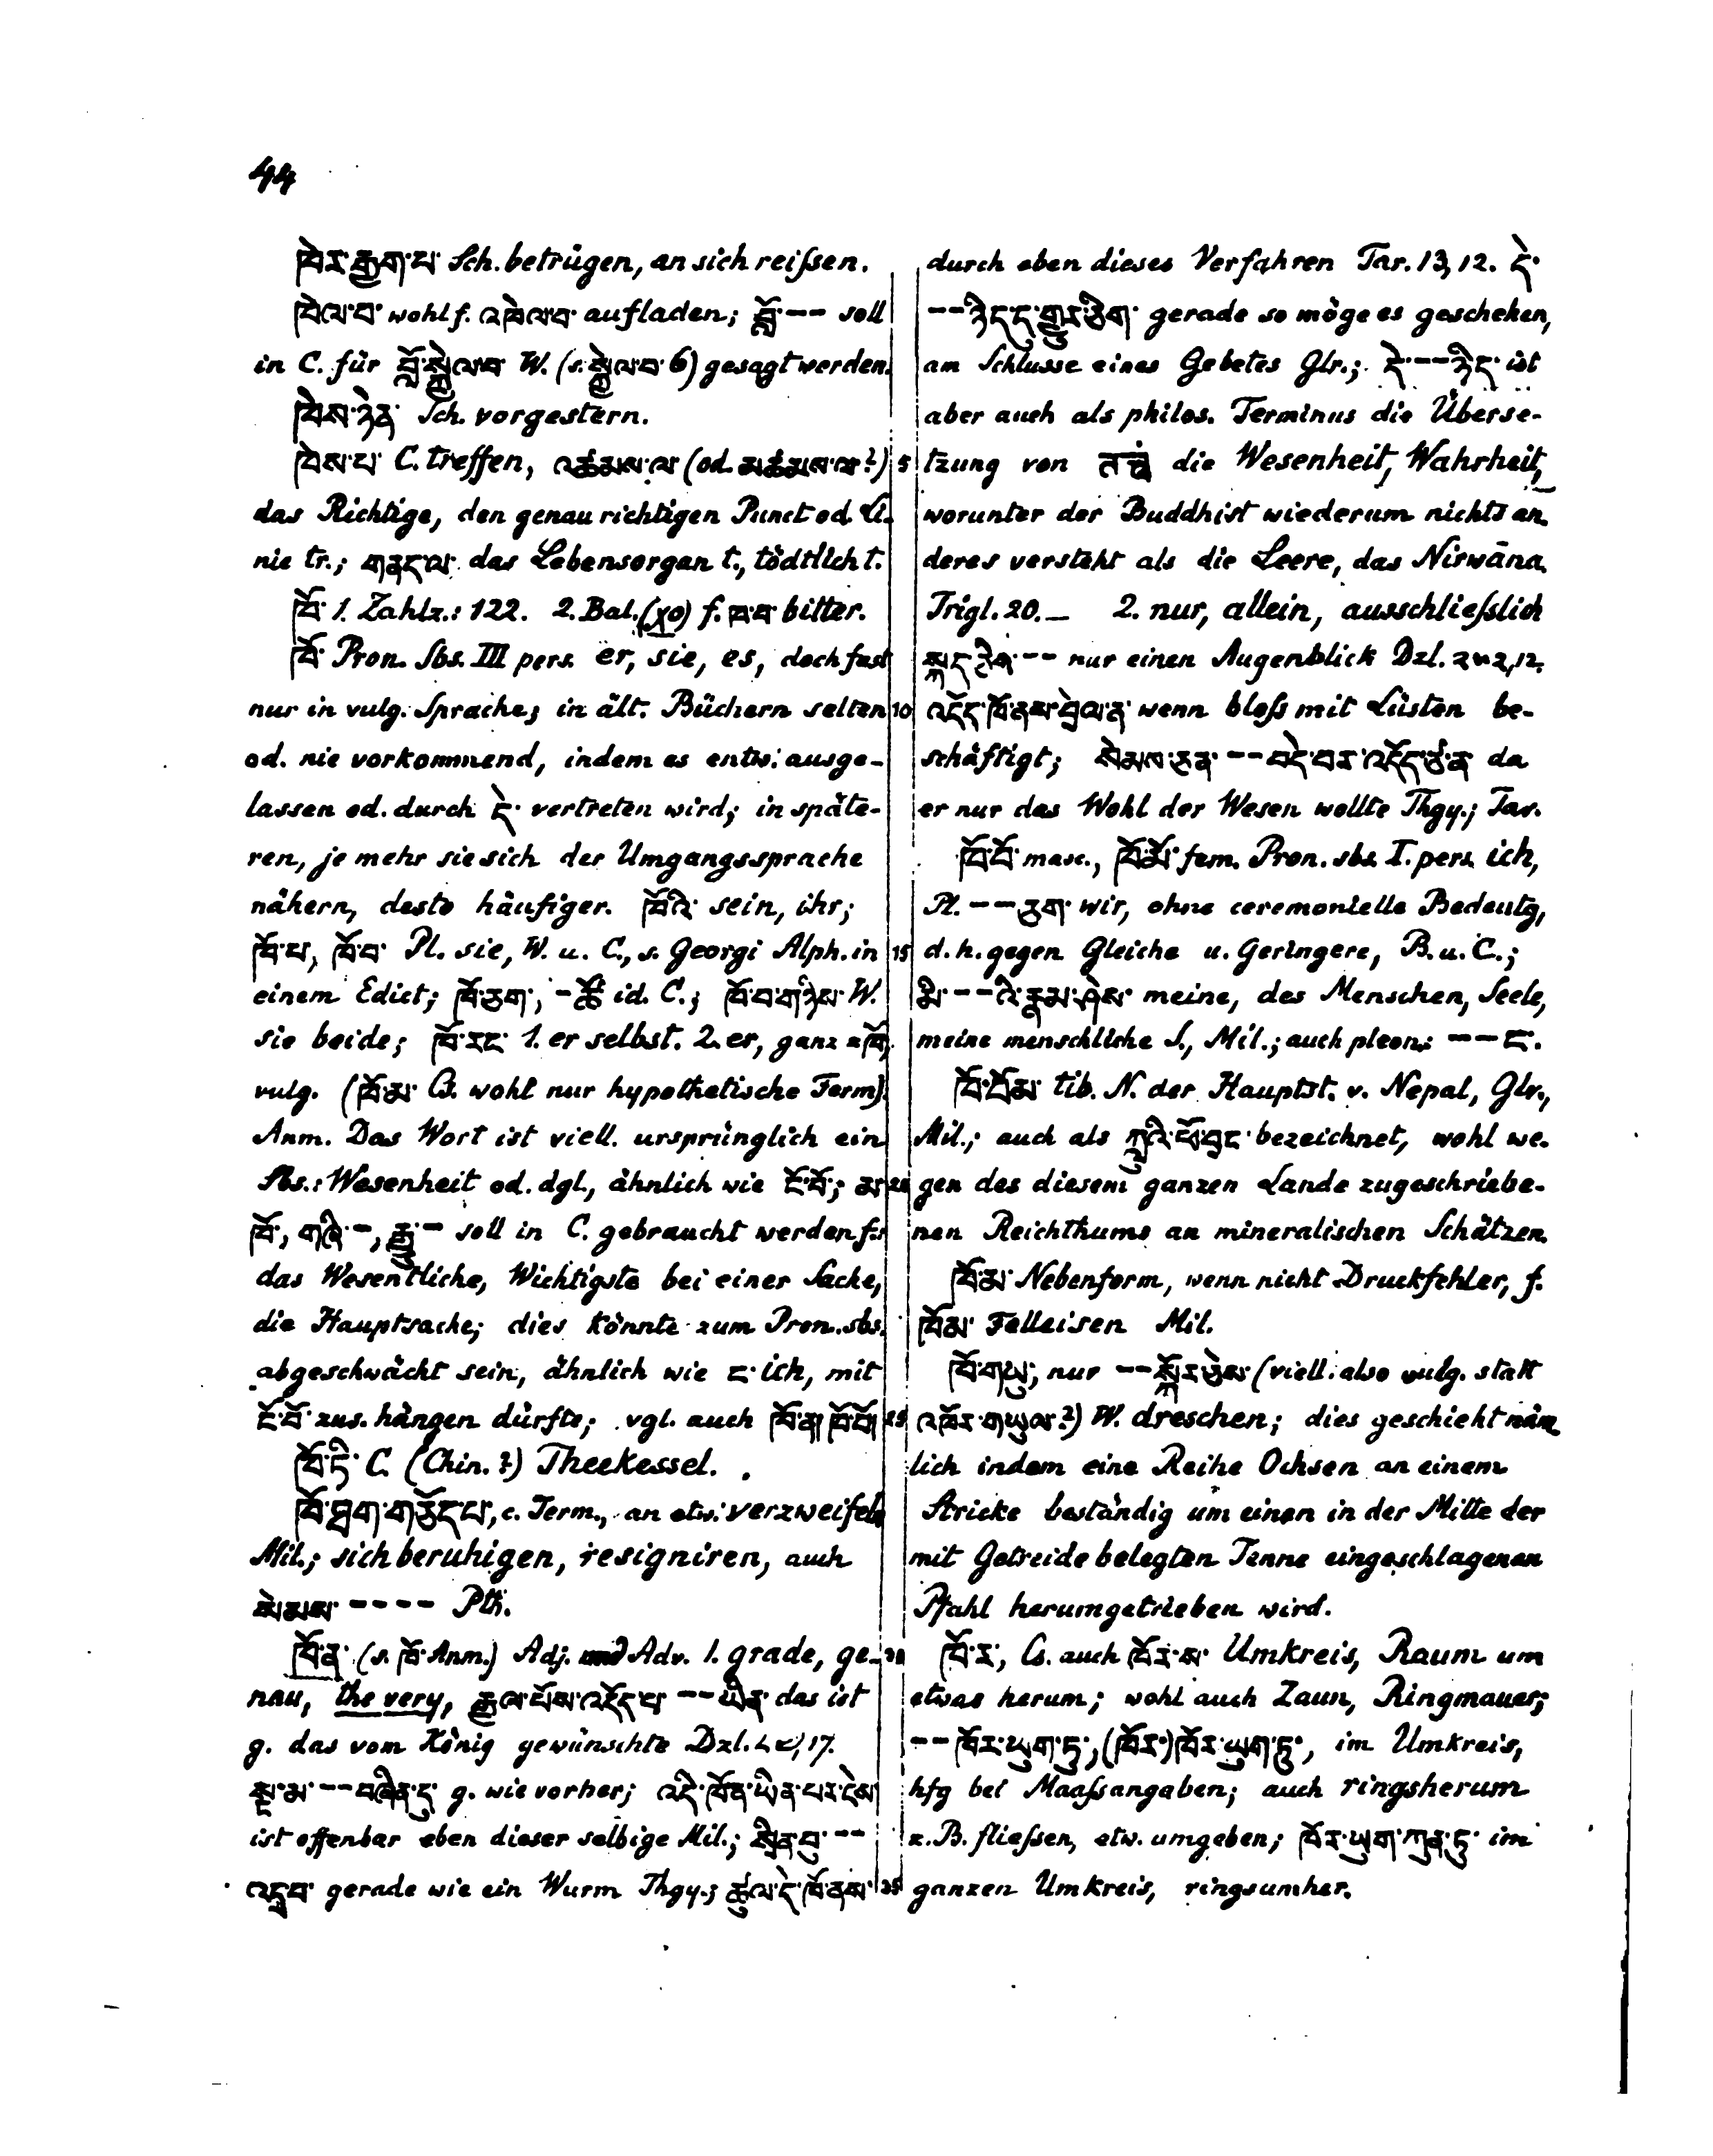 44
ཁེར་རྒྱག་པ་ Sch. betrügen, an sich reißen.
ཁེལ་བ་ wohl f. འཁེལ་བ་ aufladen; བློ་-- soll
in C. für བློ་སྐྱེལ་བ་ W. (s. སྐྱེལ་བ་ 6) gesagt werden.
ཁེས་ཉེན་ Sch. vorgestern.
ཁེས་པ་ C. treffen, འཚམས་ལ་ (od. མཚམས་ལ་?)
das Richtige, den genau richtigen Punct od. Li-
nie tr.; གནད་ལ་ das Lebensorgan t., tödtlich t.
ཁོ་ 1. Zahlz.: 122. 2. Bal. (χo) f. ཁ་བ་ bitter.
ཁོ་ Pron. Sbs. III pers. er, sie, es, doch fast
nur in vulg. Sprache; in ält. Büchern selten
od. nie vorkommend, indem es entw. ausge-
lassen od. durch དེ་ vertreten wird; in späte-
ren, je mehr sie sich der Umgangssprache
nähern, desto häufiger. ཁོའི་ sein, ihr;
ཁོ་པ་, ཁོ་བ་ Pl. sie, W. u. C., s. Georgi Alph. in
einem Edict; ཁོ་ཅག་, -ཚོ་ id. C.; ཁོ་བ་གཉིས་ W.
sie beide; ཁོ་རང་ 1. er selbst. 2. er, ganz = ཁོ,
vulg. (ཁོ་མ་ Cs. wohl nur hypothetische Form).
Anm. Das Wort ist viell. ursprünglich ein
Sbs.: Wesenheit od. dgl., ähnlich wie ངོ་བོ་; མ་
ཁོ་, གཞི་-, རྒྱུ་- soll in C. gebraucht werden f.:
das Wesentliche, Wichtigste bei einer Sache,
die Hauptsache; dies könnte zum Pron. sbs.
abgeschwächt sein, ähnlich wie ང་ ich, mit
ངོ་བོ་ zus. hängen dürfte; vgl. auch ཁོ་ན། ཁོ་བོ།
ཁོ་ཏི་ C. (Chin.?) Theekessel.
ཁོ་ཐག་གཅོད་པ་, c. Term., an etw. verzweifeln
Mil.; sich beruhigen, resigniren, auch
སེམས་ ---- Pth.
ཁོ་ན་ (s. ཁོ་ Anm.) Adj. und Adv. 1. grade, ge-
nau, the very, རྒྱལ་པོས་འདོད་པ་ --ཡིན་ das ist
g. das vom König gewünschte Dzl. 17.
སྔ་མ་ --བཞིན་དུ་ g. wie vorher; འདི་ཁོ་ན་ཡིན་པར་ངེས་
ist offenbar eben dieser selbige Mil.; སྲིན་བུ་ --
འདྲ་བ་ gerade wie ein Wurm Thgy.; ཚུལ་དེ་ཁོ་ནས་
durch eben dieses Verfahren Tar. 13, 12. དེ་
--ཉིད་དུ་གྱུར་ཅིག་ gerade so möge es geschehen,
am Schlusse eines Gebetes Glr.; དེ་--ཉིད་ ist
aber auch als philos. Terminus die Überse-
tzung von तत्त्वं die Wesenheit, Wahrheit,
worunter der Buddhist wiederum nichts an-
deres versteht als die Leere, das Nirwāna
Trigl. 20. — 2. nur, allein, ausschließlich
སྐད་ཅིག་ -- nur einen Augenblick Dzl. 2, 12.
འདོད་ཁོ་ནས་བྲེལ་ན་ wenn bloß mit Lüsten be-
schäftigt; སེམས་ཅན་ --བདེ་བར་འདོད་ཙ་ན་ da
er nur das Wohl der Wesen wollte Thgy.; Tar.
ཁོ་བོ་ masc., ཁོ་མོ་ fem. Pron. sbs. I. pers. ich,
Pl. --ཅག་ wir, ohne ceremonielle Bedeutg,
d.h. gegen Gleiche u. Geringere, B. u. C.;
མི་ --འི་རྣམ་ཤེས་ meine, des Menschen, Seele,
meine menschliche S., Mil.; auch pleon.: --ང.
ཁོ་བོམ་ tib. N. der Hauptst. v. Nepal, Glr.,
Mil.; auch als ཀླུའི་ཕོ་བྲང་ bezeichnet, wohl we-
gen des diesem ganzen Lande zugeschriebe-
nen Reichthums an mineralischen Schätzen.
ཁོ་མ་ Nebenform, wenn nicht Druckfehler, f.
ཁོམ་ Felleisen Mil.
ཁོ་གཡུ; nur --སྐོར་ཅེས་ (viell. also vulg. statt
འཁོར་གཡུལ་?) W. dreschen; dies geschieht näm-
lich indem eine Reihe Ochsen an einem
Stricke beständig um einen in der Mitte der
mit Getreide belegten Tenne eingeschlagenen
Pfahl herumgetrieben wird.
ཁོ་ར་, Cs. auch ཁོ་ར་ས་ Umkreis, Raum um
etwas herum; wohl auch Zaun, Ringmauer;
--ཁོར་ཡུག་ཏུ་, (ཁོར་)ཁོར་ཡུག་ཏུ་, im Umkreis,
hfg bei Maaßangaben; auch ringsherum
z. B. fließen, etw. umgeben; ཁོར་ཡུག་ཀུན་ཏུ་ im
ganzen Umkreis, ringsumher.